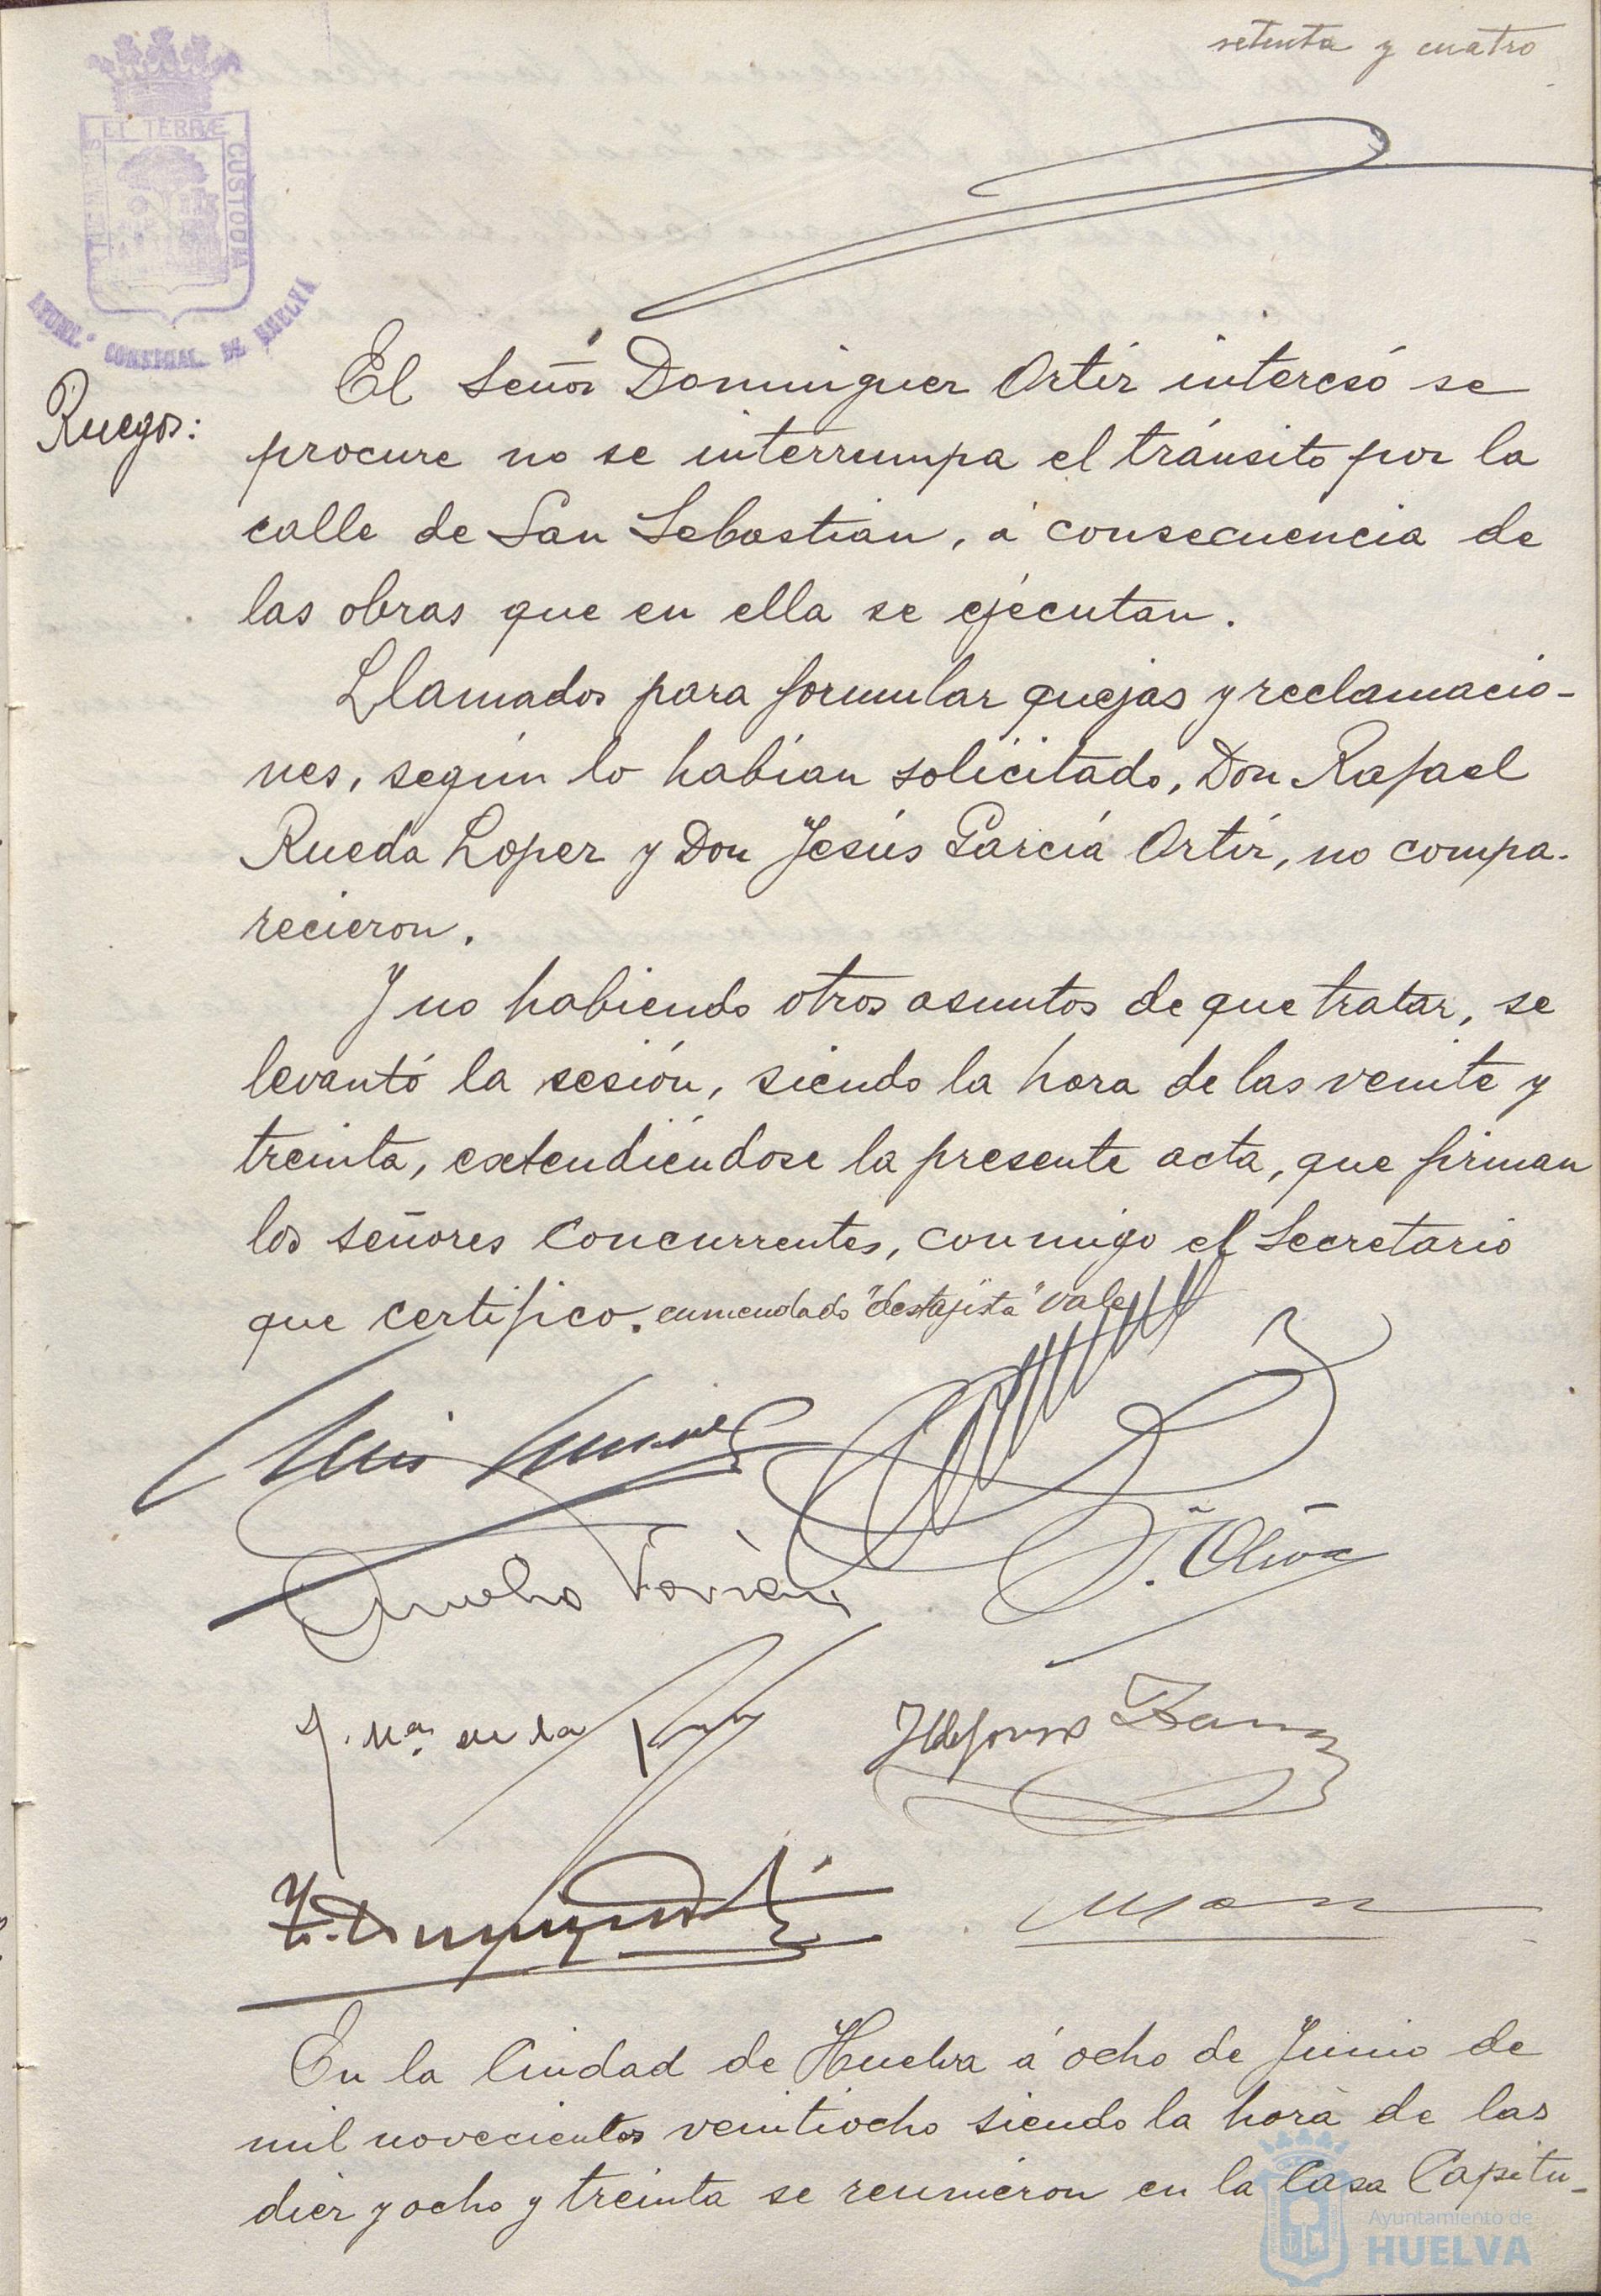 setenta y cuatro
ET TERRÆ
CUSTODIA
AYUNT.º
DE HUELVA
Ruegos:
El Señor Dominguez Ortiz interesó se
procure no se interrumpa el tránsito por la
calle de San Sebastian, á consecuencia de
las obras que en ella se ejecutan.
Llamados para formular quejas y reclamacio-
nes, según lo habían solicitado, Don Rafael
Rueda Lopez y Don Jesús García Ortiz, no compa-
recieron.
Y no habiendo otros asuntos de que tratar, se
levantó la sesión, siendo la hora de las veinte y
treinta, extendiéndose la presente acta, que firman
los señores concurrentes, conmigo el Secretario
que certifico. enmendado "destajista" vale
J. Oliva
En la Ciudad de Huelva á ocho de Junio de
mil novecientos veintiocho siendo la hora de las
diez y ocho y treinta se reunieron en la Casa Capitu-
Ayuntamiento de
HUELVA